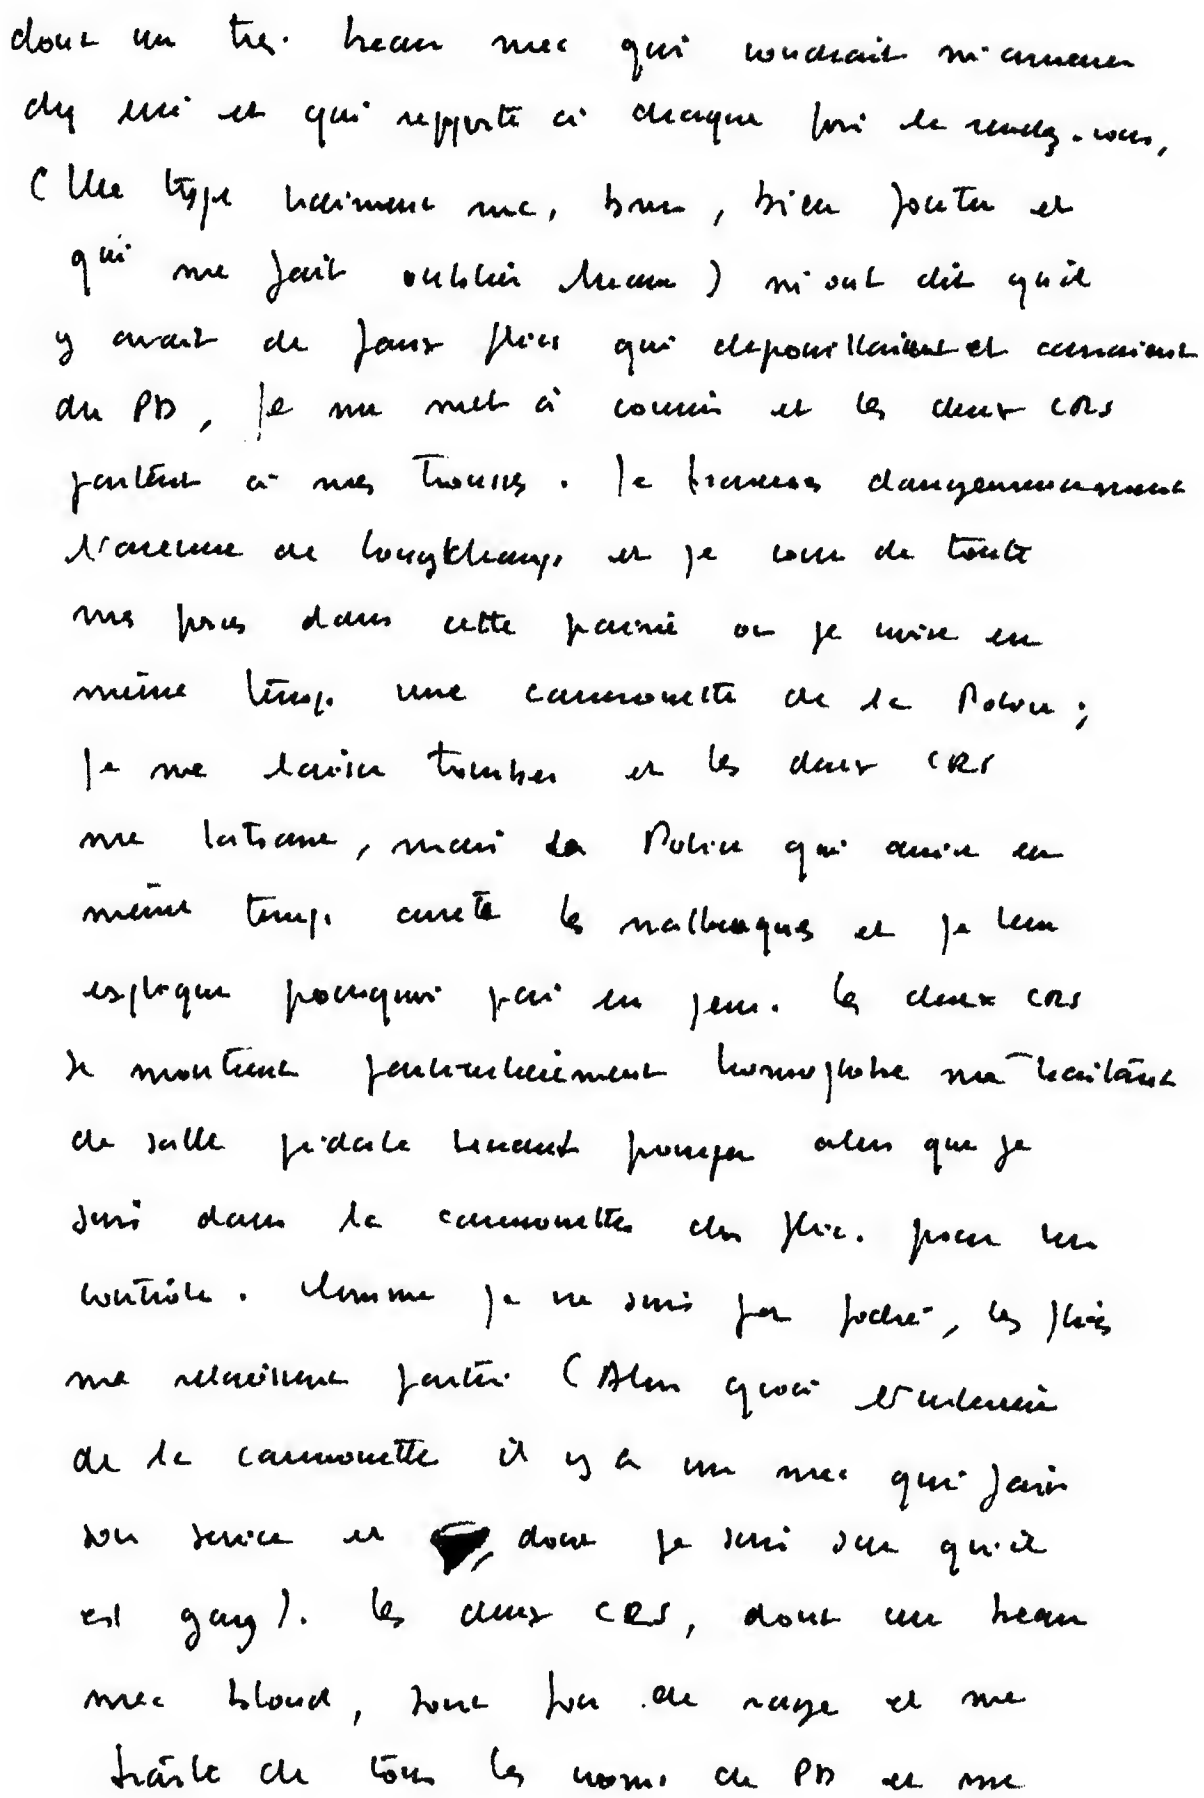 dont un tres beau mec qui voudrait m'amener
chez lui et qui repporte à chaque fois le rendez-vous,
(Un type vraiment mec, brun, bien foutu et
qui me fait oublier) m'ont dit qu'il
y avait de faux flics qui depouillaient et cassaient
du PD, Je me met à courir et les deux CRS
partent à mes trousses. Je traverses dangereusement
l'avenue de Longchamps et je cour de toute
mes forces dans cette prairie ou je croise en
même temps une camionnette de la Police;
Je me laisse tomber et les deux CRS
me, mais la Police qui arrive en
même temps arrete les matraques et je leur
explique pourquoi j'ai eu peur. les deux CRS
se montrent particulièrement homophobe me traitant
de salle pédale alors que je
suis dans la camionnette des flics pour un
controle. Comme je ne suis pas fiché, les flics
me relaissent partir (Alors quoi l'interieur
de la camionnette il y a un mec qui fait
son service et dont je suis sur qu'il
est gay). les deux CRS, dont un beau
mec blond, sont fou de rage et me
traite de tous les noms de PD et me